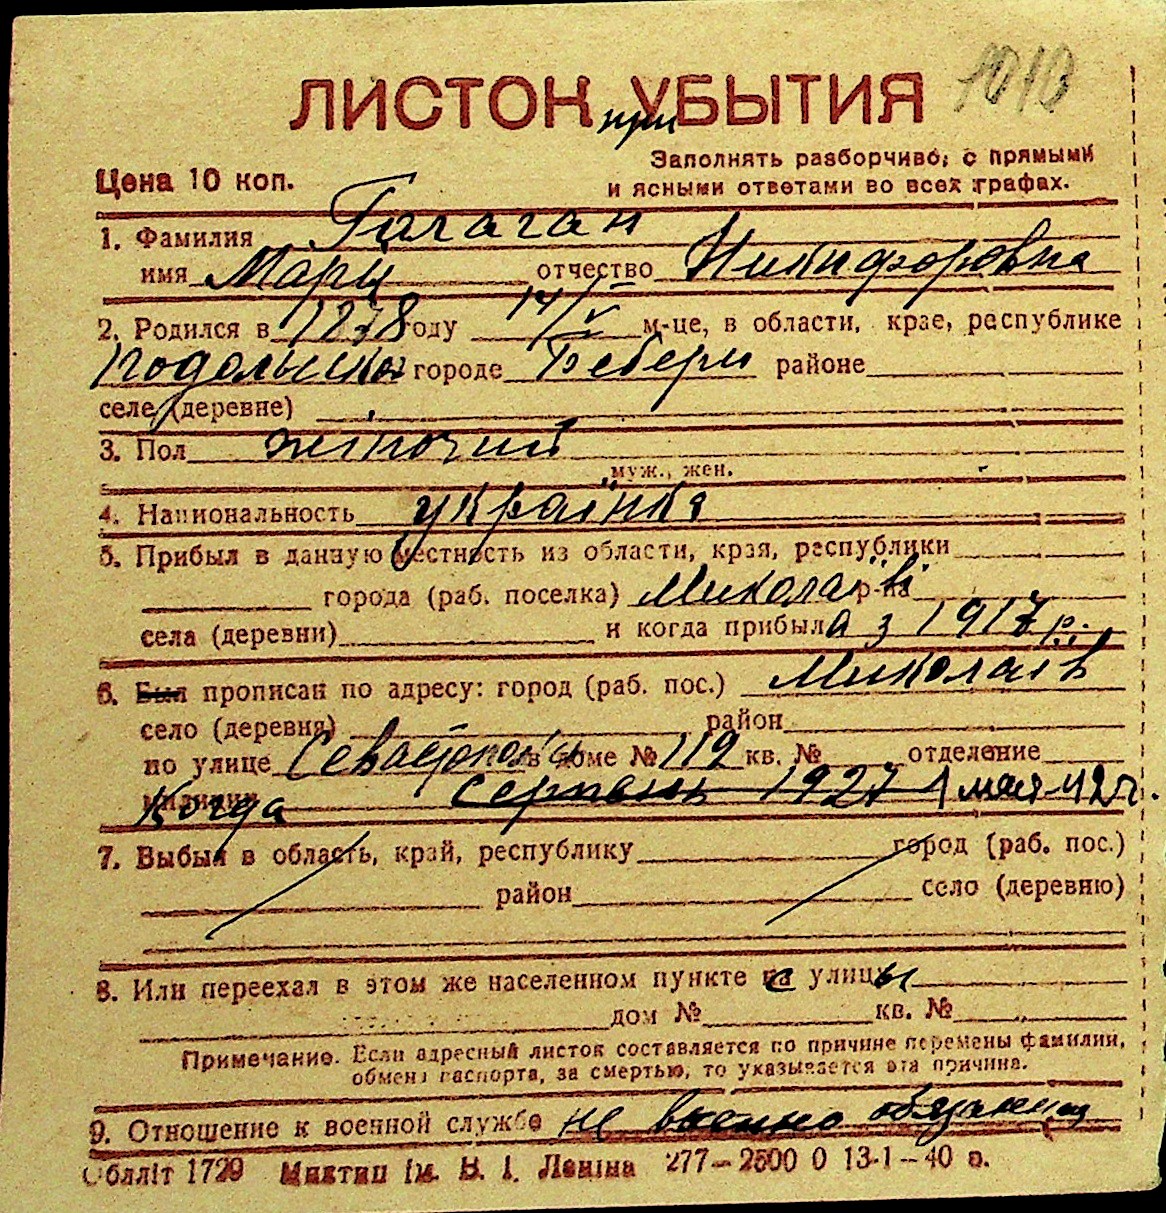 1010
ЛИСТОК при УБЫТИЯ
Цена 10 коп.
Заполнять разборчиво, с прямыми
и ясными ответами во всех графах.
1. Фамилия Галаган
имя Марія отчество Никифоровна
2. Родился в 1878 году 14/V м-це, в области, крае, республике
Подольська городе Бебери районе
селе (деревне)
3. Пол жіночий
муж., жен.
4. Национальность українка
5. Прибыл в данную местность из области, края, республики
города (раб. поселка) Миколаїв р-на
села (деревни) и когда прибыла з 1917 р.
6. Был прописан по адресу: город (раб. пос.) Миколаїв
село (деревня) район
по улице Севастопольс в доме № 119 кв. № отделение
милиции Когда серпень 1927 1 мая 42 г.
7. Выбыл в область, край, республику город (раб. пос.)
район село (деревню)
8. Или переехал в этом же населенном пункте с улицы
дом № кв. №
Примечание. Если адресный листок составляется по причине перемены фамилии,
обмена паспорта, за смертью, то указывается эта причина.
9. Отношение к военной службе не военно обязанная
Обліт 1729 Миктип ім. В. І. Леніна 277–2500 0 13-1–40 в.